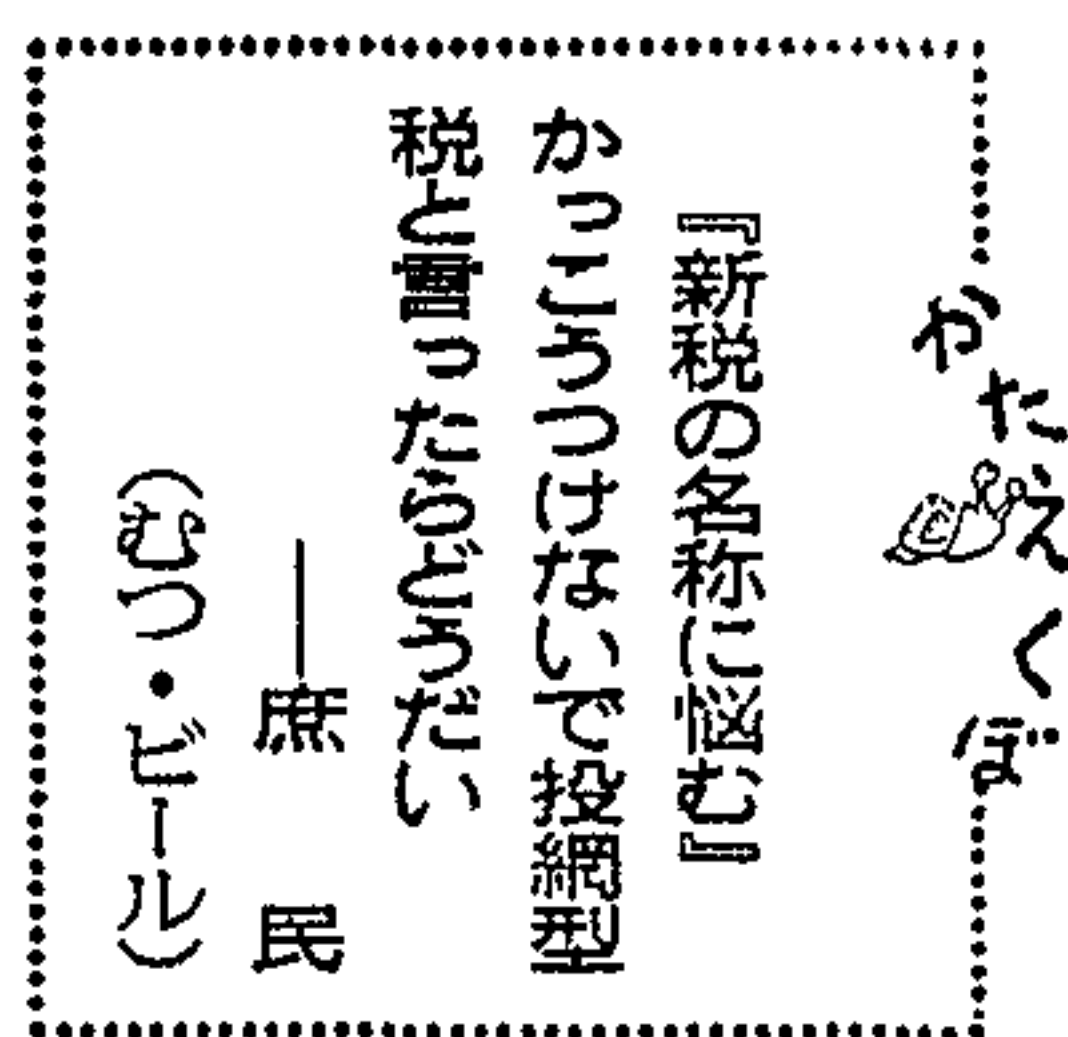 かたえくぼ
『新税の名称に悩む』
かっこうつけないで投網型
税と言ったらどうだい
――庶民
(むつ・ビール)